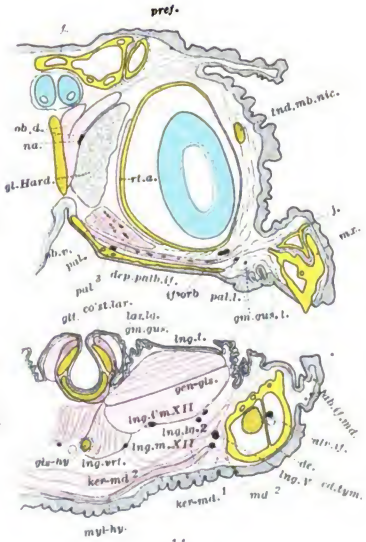 pref.
f.
tnd.mb.nic.
ob.d.
na.
gl.Hard.
rt.a.
j.
mx.
ob.v.
pal.
pal 3
dep.palb.if.
if orb
pal.l.
gm.gus.l.
glt.
co'st.lar.
lar.lg.
gm.gus.
lng.t.
gen-gls.
lng.l'm.XII
lng.lg.2
gls-hy
lng.vrt.
lng.m.XII
ker-md 2
ker-md.1
md 2
lng.V
cd.tym.
de.
alv.if.
lab.if.md.
myl-hy.